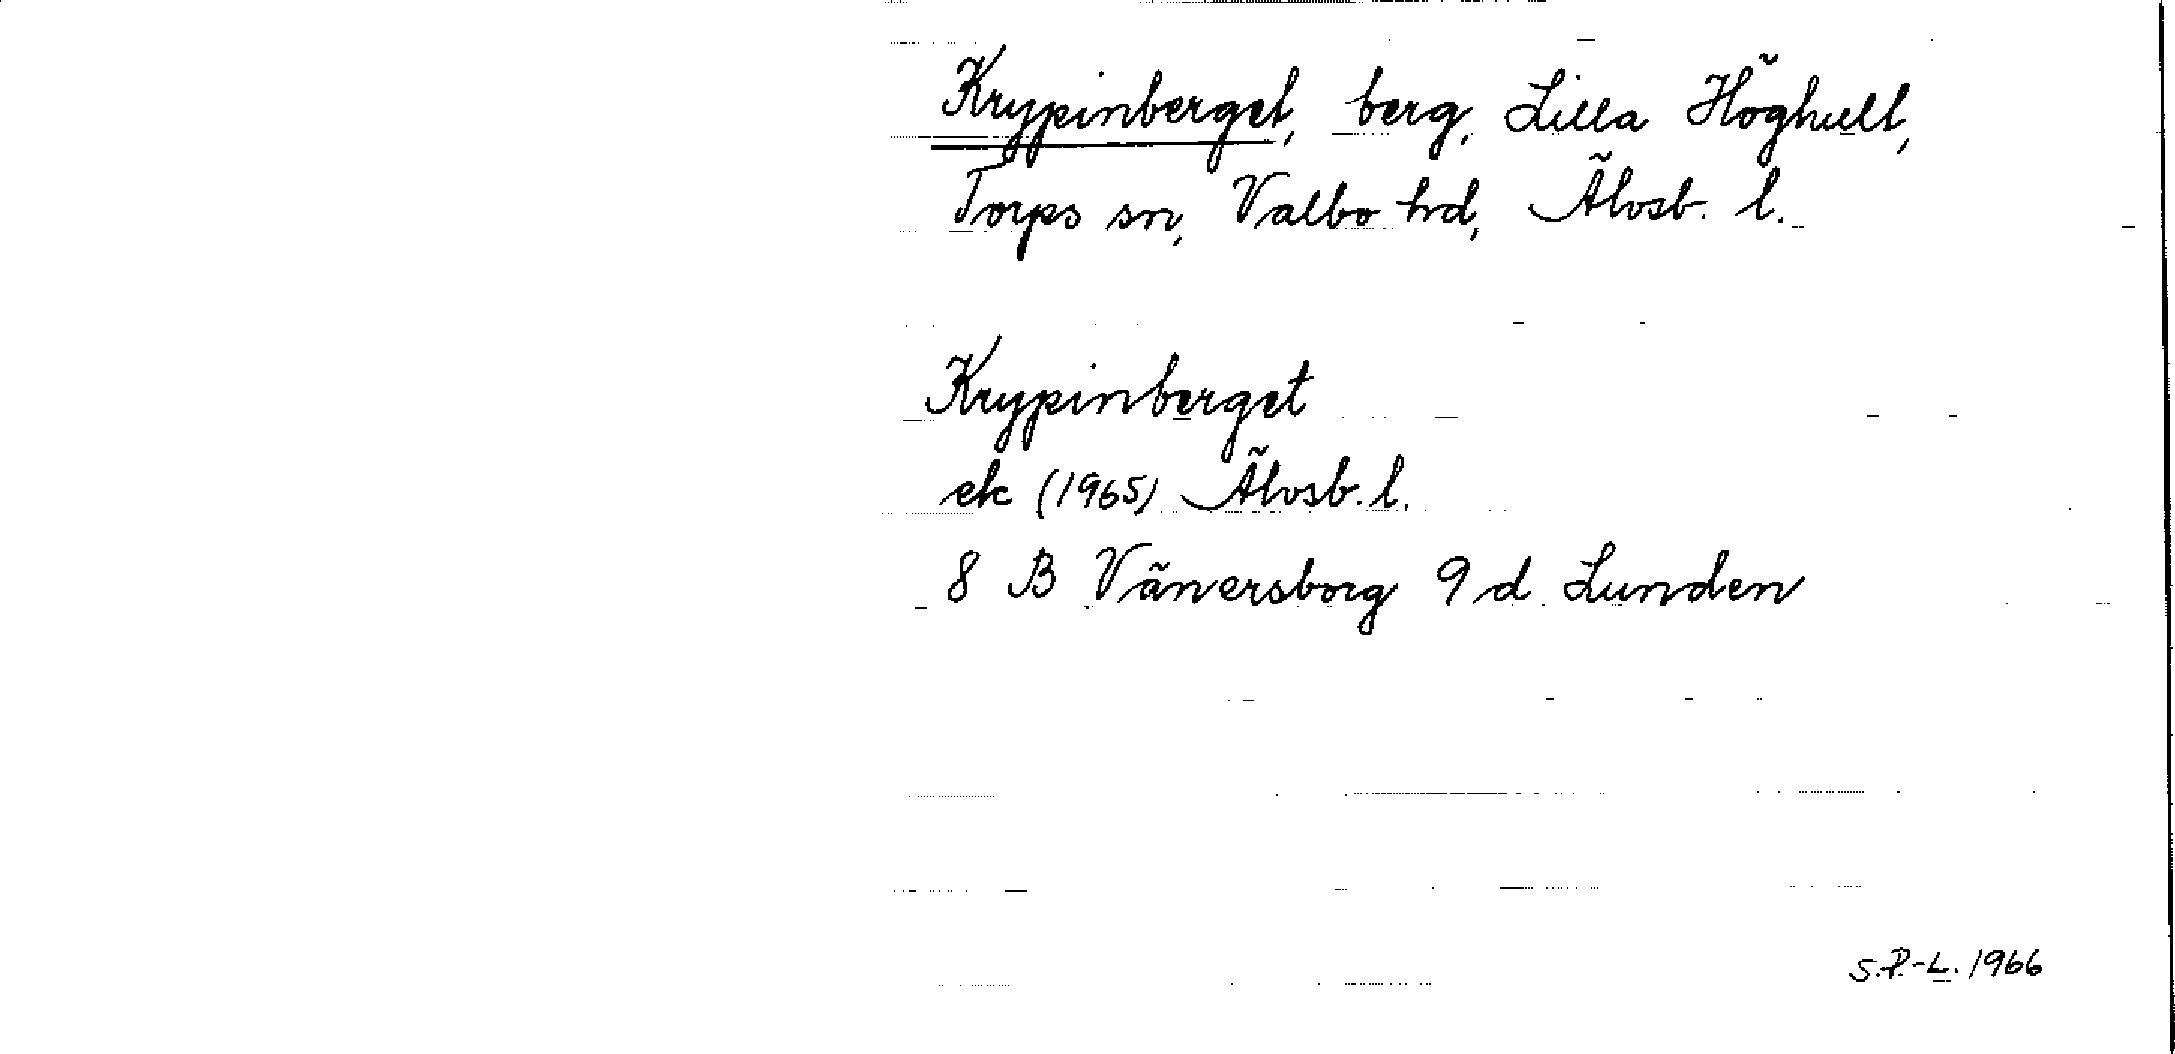 Krypinberget, berg, Lilla Höghult,
Torps sn, Valbo hd, Älvsb. l.
Krypinberget
ek (1965) Älvsb. l.
8 B Vänersborg 9 d Lunden
S.P.-L. 1966